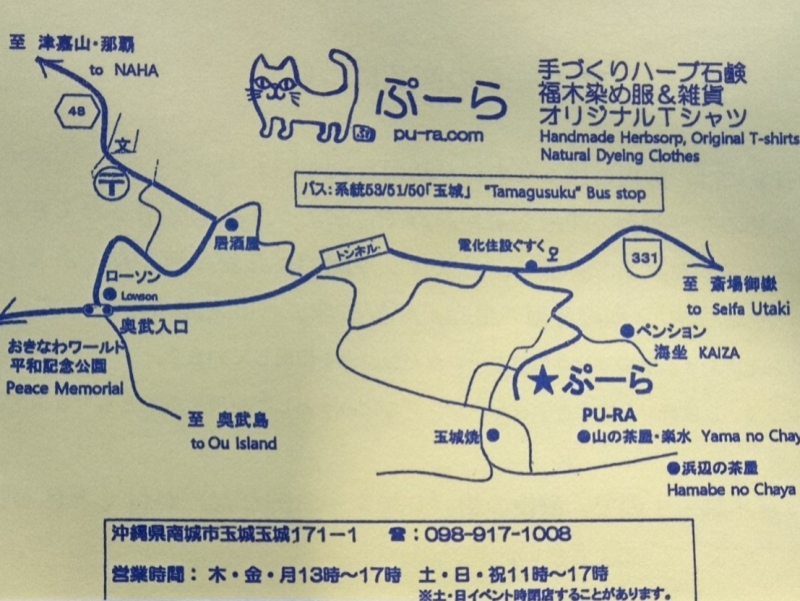 至 津嘉山・那覇
to NAHA
48
文
〒
ぷーら
ぷら
pu-ra.com
手づくりハーブ石鹸
福木染め服&雑貨
オリジナルTシャツ
Handmade Herbsorp, Original T-shirts
Natural Dyeing Clothes
バス:系統53/51/50「玉城」 "Tamagusuku" Bus stop
居酒屋
トンネル
電化住設ぐすく
331
至 斎場御嶽
to Seifa Utaki
ローソン
Lowson
奥武入口
おきなわワールド
平和記念公園
Peace Memorial
至 奥武島
to Ou Island
ペンション
海坐 KAIZA
★ぷーら
PU-RA
玉城焼
山の茶屋・楽水 Yama no Chay
浜辺の茶屋
Hamabe no Chaya
沖縄県南城市玉城玉城171-1 ☎:098-917-1008
営業時間: 木・金・月13時〜17時 土・日・祝11時〜17時
※土・日イベント時閉店することがあります。